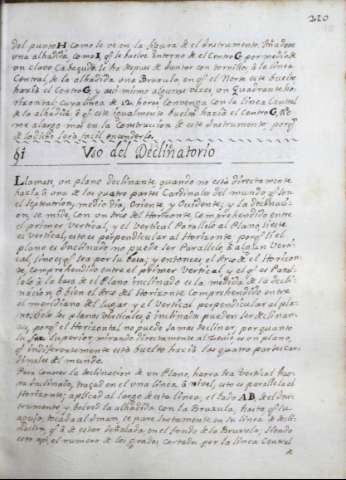 210
del punto H como se ve en la figura de el instrumento. Añadese
una alhidada como I, qᵉ se buelve entorno de el centro G, por medio de
un clavo
Central de la alhidada una Bruxula, en qᵉ el Norte este buelto
hazia el centro G, y assi mismo algunas vezes, un Quadrante ho-
rizontal, cuya linea de 12 horas convenga con la linea Central
de la alhidada, ô qᵉ este igualmente buelta hazia el centro G. No
me alargo mas en la Construccion de este Instrumento, porqᵉ
de lo dicho será facil entenderlo.
§ I Uso del Declinatorio
Llamase un plano declinante, quando no está directamente
hazia
el septentrion, medio dia, Oriente, y Occidente; y la declinaci-
on, se mide, con un Arco del Horizonte, comprehendido entre
el primer Vertical, y el Vertical Paralelo al Plano, si este
es vertical, esto es perpendicular al Horizonte, porqᵉ si el
plano es Inclinado no puede ser Paralelo, â algun Verti-
cal, sino es qᵉ sea por su Base; y entonces el Arco de el Horizon-
te, comprehendido entre el primer vertical, y el qᵉ es Para-
lelo â la base de el Plano inclinado es la medida de la decli-
nacion, ô bien el Arco del Horizonte comprehendido entre
el meridiano del lugar, y el Vertical perpendicular al pla-
no. Solo los planos Verticales, ô inclinados pueden ser declinan-
tes, porqᵉ el Horizontal no puede llamarse declinar, por quanto
su superior, mirando directamente al Zenit, es un plano,
qᵉ indiferentemente está buelto hazia las quatro partes car-
dinales de el mundo.
Para conocer la declinacion de un Plano, hora sea Vertical, hora
sea inclinado, traçad en el una linea â nivel, esto es paralela al
Horizonte; aplicad al largo de esta linea, el lado AB, de el Ins-
trumento y bolved la alhidada con la Bruxula, hasta qᵉ la
aguja, tocada al iman, se pare justamente en su linea de decli-
nacion, qᵉ â de estar señalada en el fondo de la Bruxula, siendo
esto assi, el numero de los grados cortados por la linea Central